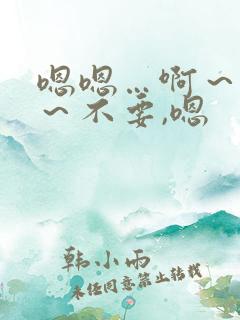 嗯嗯…啊～
～不要,嗯
韩小雨
未经同意禁止转载